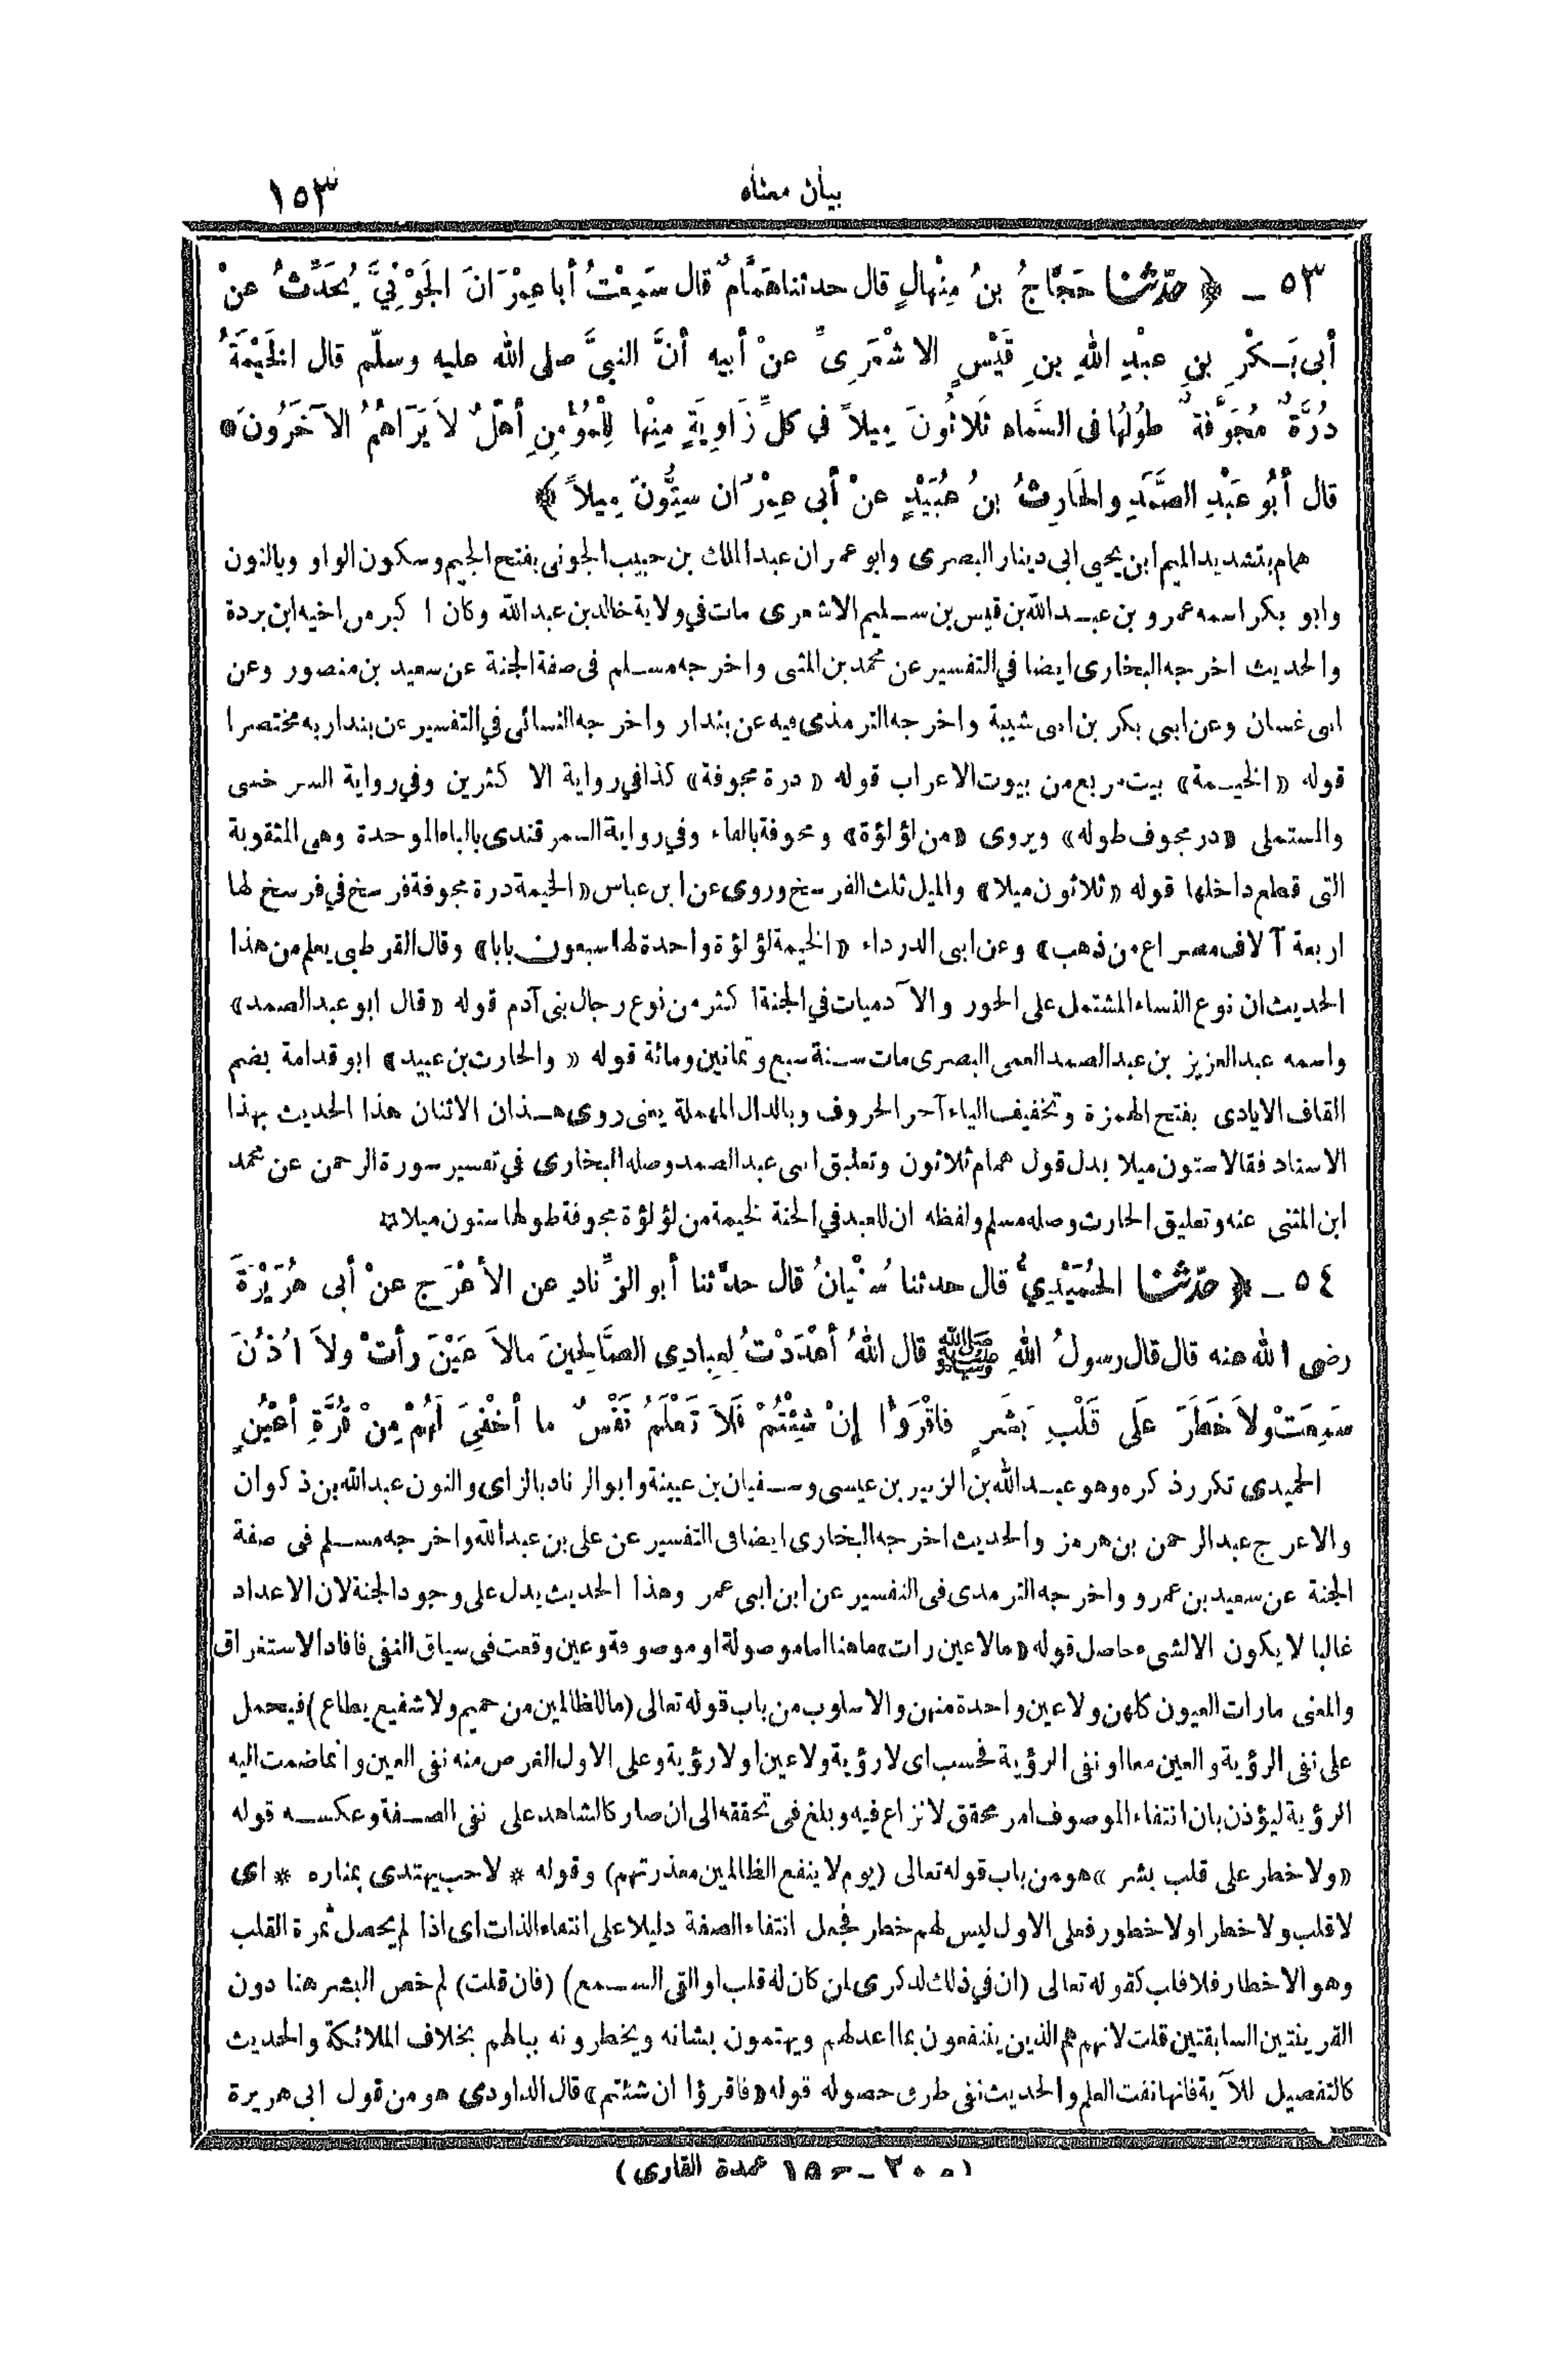 بيان معناه ١٥٣
٥٣ ـ ﴿ حدّثنا حَجَّاجُ بنُ مِنْهالٍ قال حدثنا هَمَّامٌ قال سَمِعْتُ أبا عِمْرَانَ الجَوْنِيَّ يُحَدِّثُ عنْ
أبى بَكْرِ بنِ عبْدِ اللهِ بنِ قَيْسٍ الاشْعَرِىِّ عنْ أبيه أنَّ النبىَّ صلى الله عليه وسلّم قال الخَيْمَةُ
دُرَّةٌ مُجَوَّفَةٌ طُولُهَا فى السَّماءِ ثَلاثُونَ مِيلاً في كلِّ زَاوِيَةٍ مِنْها لِلْمُؤْمِنِ أهْلٌ لاَ يَرَاهُمُ الآخَرُونَ *
قال أبُو عَبْدِ الصَّمَدِ والحَارِثُ بنُ عُبَيْدٍ عنْ أبي عِمْرَان سِتُّونَ مِيلاً ﴾
همام بتشديد الميم ابن يحيى ابى دينار البصرى وابو عمران عبد الملك بن حبيب الجونى بفتح الجيم وسكون الواو وبالنون
وابو بكر اسمه عمرو بن عبد الله بن قيس بن سليم الاشعرى مات في ولاية خالد بن عبد الله وكان اكبر من اخيه ابن بردة
والحديث اخرجه البخارى ايضا في التفسير عن محمد بن المثنى واخرجه مسلم فى صفة الجنة عن سعيد بن منصور وعن
ابى غسان وعن ابى بكر بن ابى شيبة واخرجه الترمذى فيه عن بندار واخرجه النسائى في التفسير عن بندار به مختصرا
قوله «الخيمة» بيت مربع من بيوت الاعراب قوله «درة مجوفة» كذا في رواية الاكثرين وفي رواية السرخسى
والمستملى «در مجوف طوله» ويروى «من لؤلؤة» ومجوفة بالفاء وفي رواية السمرقندى بالباء الموحدة وهى المثقوبة
التى قطع داخلها قوله «ثلاثون ميلا» والميل ثلث الفرسخ وروى عن ابن عباس «الخيمة درة مجوفة فرسخ في فرسخ لها
اربعة آلاف مصراع من ذهب» وعن ابى الدرداء «الخيمة لؤلؤة واحدة لها سبعون بابا» وقال القرطبى يعلم من هذا
الحديث ان نوع النساء المشتمل على الحور والآدميات في الجنة اكثر من نوع رجال بنى آدم قوله «قال ابو عبد الصمد»
واسمه عبد العزيز بن عبد الصمد العمى البصرى مات سنة سبع وثمانين ومائة قوله «والحارث بن عبيد» ابو قدامة بضم
القاف الايادى بفتح الهمزة وتخفيف الياء آخر الحروف وبالدال المهملة يعنى روى هذان الاثنان هذا الحديث بهذا
الاسناد فقالا ستون ميلا بدل قول همام ثلاثون وتعليق ابى عبد الصمد وصله البخارى في تفسير سورة الرحمن عن محمد
ابن المثنى عنه وتعليق الحارث وصله مسلم ولفظه ان للعبد في الجنة لخيمة من لؤلؤة مجوفة طولها ستون ميلا *
٥٤ ـ ﴿ حدّثنا الحُمَيْدِيُّ قال حدثنا سُفْيانُ قال حدّثنا أبو الزِّنادِ عن الأعْرَجِ عنْ أبى هُرَيْرَةَ
رضى الله عنه قال قال رسولُ اللهِ ﷺ قال اللهُ أعْدَدْتُ لِعِبادِى الصَّالِحِينَ مالاَ عَيْنَ رأتْ ولاَ اُذُنَ
سَمِعَتْ ولاَ خَطَرَ عَلَى قَلْبِ بَشَرٍ فاقْرَوُا إنْ شِئْتُمْ فَلاَ تَعْلَمُ نَفْسٌ ما أخْفِيَ لَهُمْ مِنْ قُرَّةِ أعْيُنٍ
الحميدى تكرر ذكره وهو عبد الله بن الزبير بن عيسى وسفيان بن عيينة وابو الزناد بالزاى والنون عبد الله بن ذكوان
والاعرج عبد الرحمن بن هرمز والحديث اخرجه البخارى ايضا فى التفسير عن على بن عبد الله واخرجه مسلم فى صفة
الجنة عن سعيد بن عمرو واخرجه الترمذى فى التفسير عن ابن ابى عمر وهذا الحديث يدل على وجود الجنة لان الاعداد
غالبا لا يكون الا لشىء حاصل قوله «مالا عين رات» ما هنا اما موصولة او موصوفة وعين وقعت فى سياق النفى فافاد الاستغراق
والمعنى ما رات العيون كلهن ولا عين واحدة منهن والاسلوب من باب قوله تعالى (ما للظالمين من حميم ولا شفيع يطاع) فيحمل
على نفى الرؤية والعين معا او نفى الرؤية فحسب اى لا رؤية ولا عين او لا رؤية وعلى الاول الغرض منه نفى العين وانما ضمت اليه
الرؤية ليؤذن بان انتفاء الموصوف امر محقق لا نزاع فيه وبلغ فى تحققه الى ان صار كالشاهد على نفى الصفة وعكسه قوله
«ولا خطر على قلب بشر» هو من باب قوله تعالى (يوم لا ينفع الظالمين معذرتهم) وقوله * لا حب يهتدى بمناره * اى
لا قلب ولا خطر او لا خطور فعلى الاول ليس لهم خطر فجعل انتفاء الصفة دليلا على انتفاء الذات اى اذا لم يحصل ثمرة القلب
وهو الاخطار فلا قلب كقوله تعالى (ان في ذلك لذكرى لمن كان له قلب او القى السمع) (فان قلت) لم خص البشر هنا دون
القرينتين السابقتين قلت لانهم هم الذين ينتفعون بما اعد لهم ويهتمون بشانه ويخطرونه ببالهم بخلاف الملائكة والحديث
كالتفصيل للآية فانها نفت العلم والحديث نفى طرق حصوله قوله «فاقرؤا ان شئتم» قال الداودى هو من قول ابى هريرة
(م ٢٠ ـ ج ١٥ عمدة القارى)